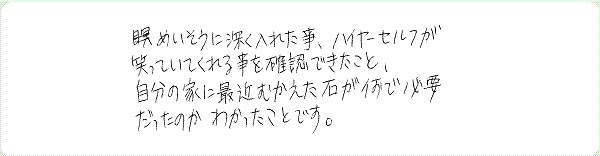 瞑めいそうに深く入れた事、ハイヤーセルフが
笑っていてくれる事を確認できたこと、
自分の家に最近むかえた石が何で必要
だったのか わかったことです。